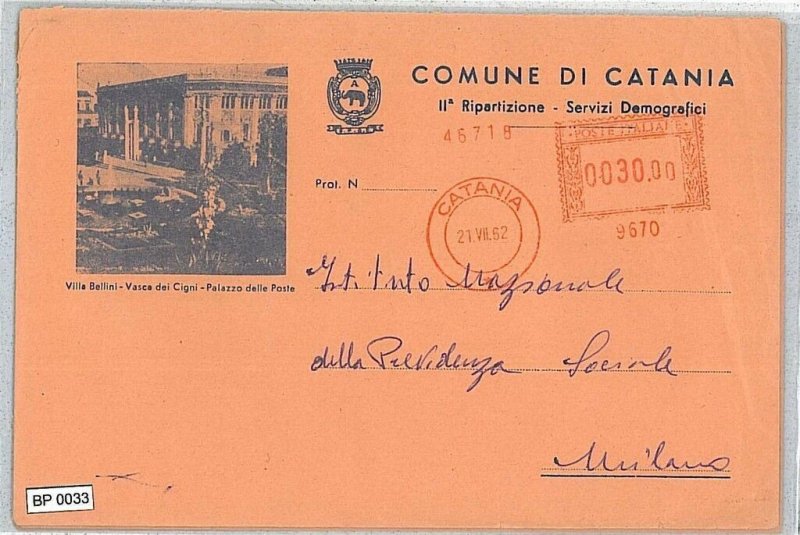 COMUNE DI CATANIA
IIª Ripartizione - Servizi Demografici
A
46718
POSTE ITALIANE
0030.00
9670
CATANIA
21.VII.62
Prot. N
Villa Bellini - Vasca dei Cigni - Palazzo delle Poste
Istituto Nazionale
della Previdenza Sociale
Milano
BP 0033